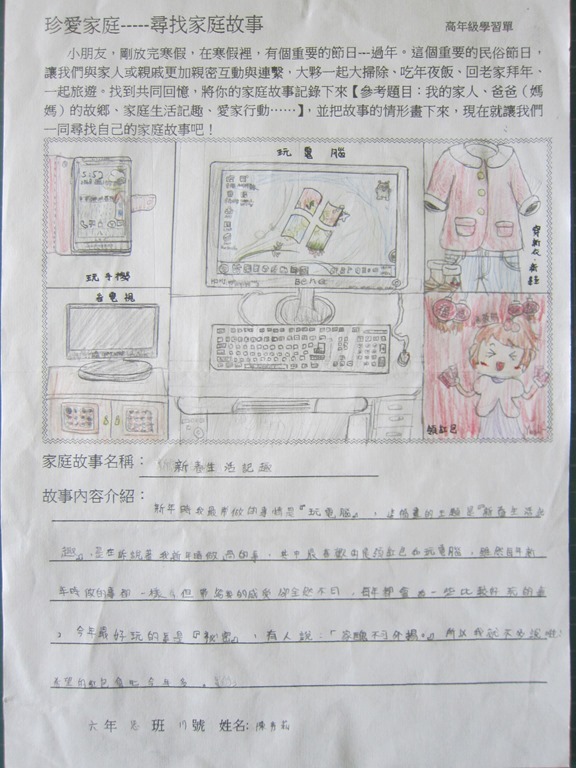 珍愛家庭-----尋找家庭故事
高年級學習單
小朋友，剛放完寒假，在寒假裡，有個重要的節日---過年。這個重要的民俗節日，
讓我們與家人或親戚更加親密互動與連繫，大夥一起大掃除、吃年夜飯、回老家拜年、
一起旅遊。找到共同回憶，將你的家庭故事記錄下來【參考題目：我的家人、爸爸（媽
媽）的故鄉、家庭生活記趣、愛家行動……】，並把故事的情形畫下來，現在就讓我們
一同尋找自己的家庭故事吧！
玩電腦
玩手機
看電視
BenQ
穿新衣、新鞋
領紅包
家庭故事名稱：新春生活記趣
故事內容介紹：
新年時我最常做的事情是『玩電腦』，這幅畫的主題是『新春生活記
趣』，是在訴說著我新年時做的事，其中最喜歡的是領紅包和玩電腦，雖然每年新
年時做的事都一樣，但帶給我的感受卻全然不同，每年都會有一些比較好玩的事
，今年最好玩的事是『秘密』，有人說：「家醜不可外揚」所以我就不多說啦！
希望的紅包會比今年多。
六年 班 11號 姓名：陳